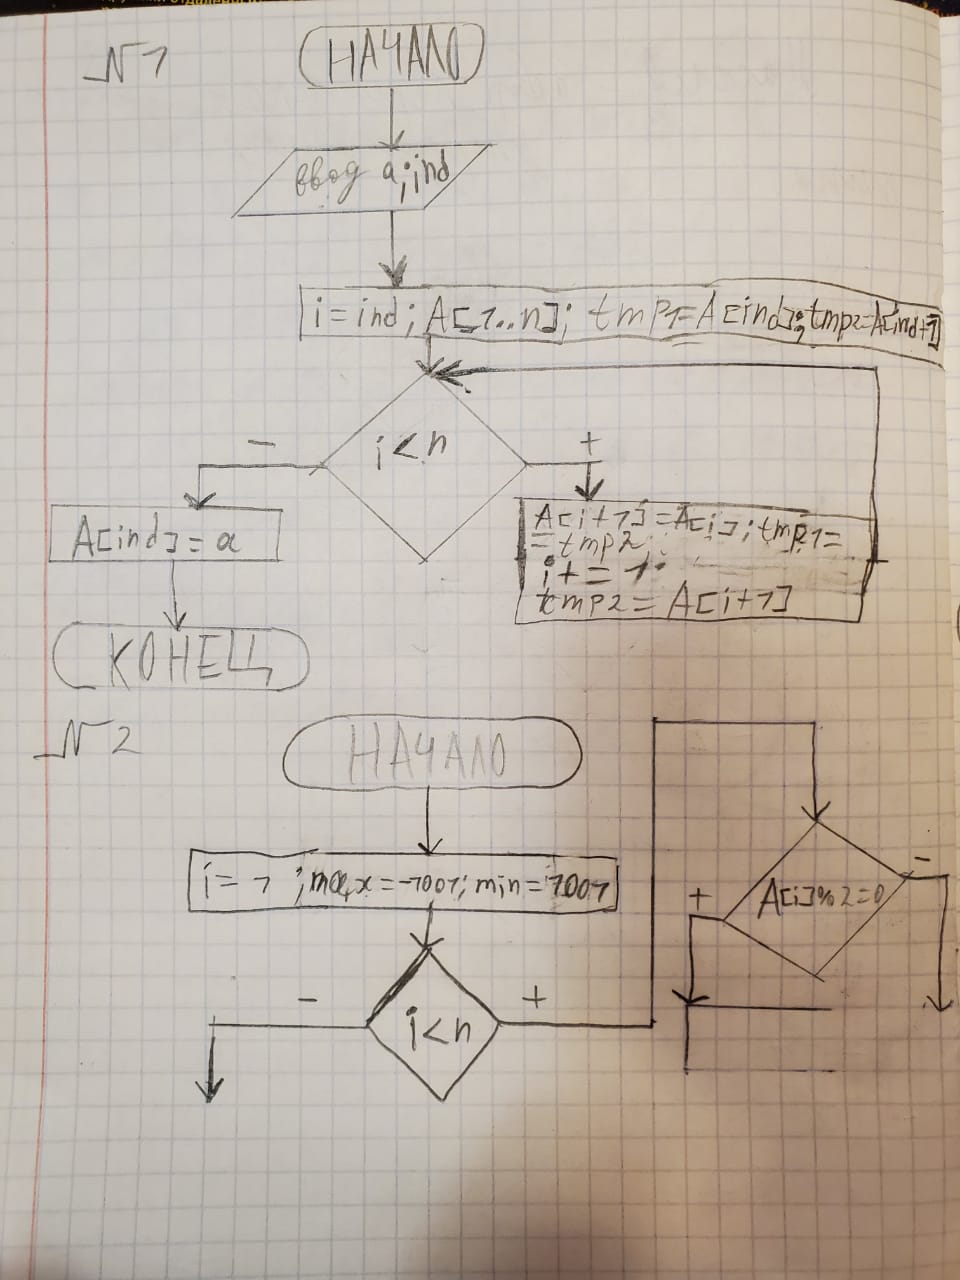 №1
НАЧАЛО
ввод a; ind
i = ind; A[1..n]; tmp1=A[ind]; tmp2=A[ind+1]
i<n
-
+
A[i+1]=A[i]; tmp1=
=tmp2;
i+=1;
tmp2=A[i+1]
A[ind]=a
КОНЕЦ
№2
НАЧАЛО
i=1; max=-1001; min=1001
i<n
-
+
A[i]%2=0
+
-